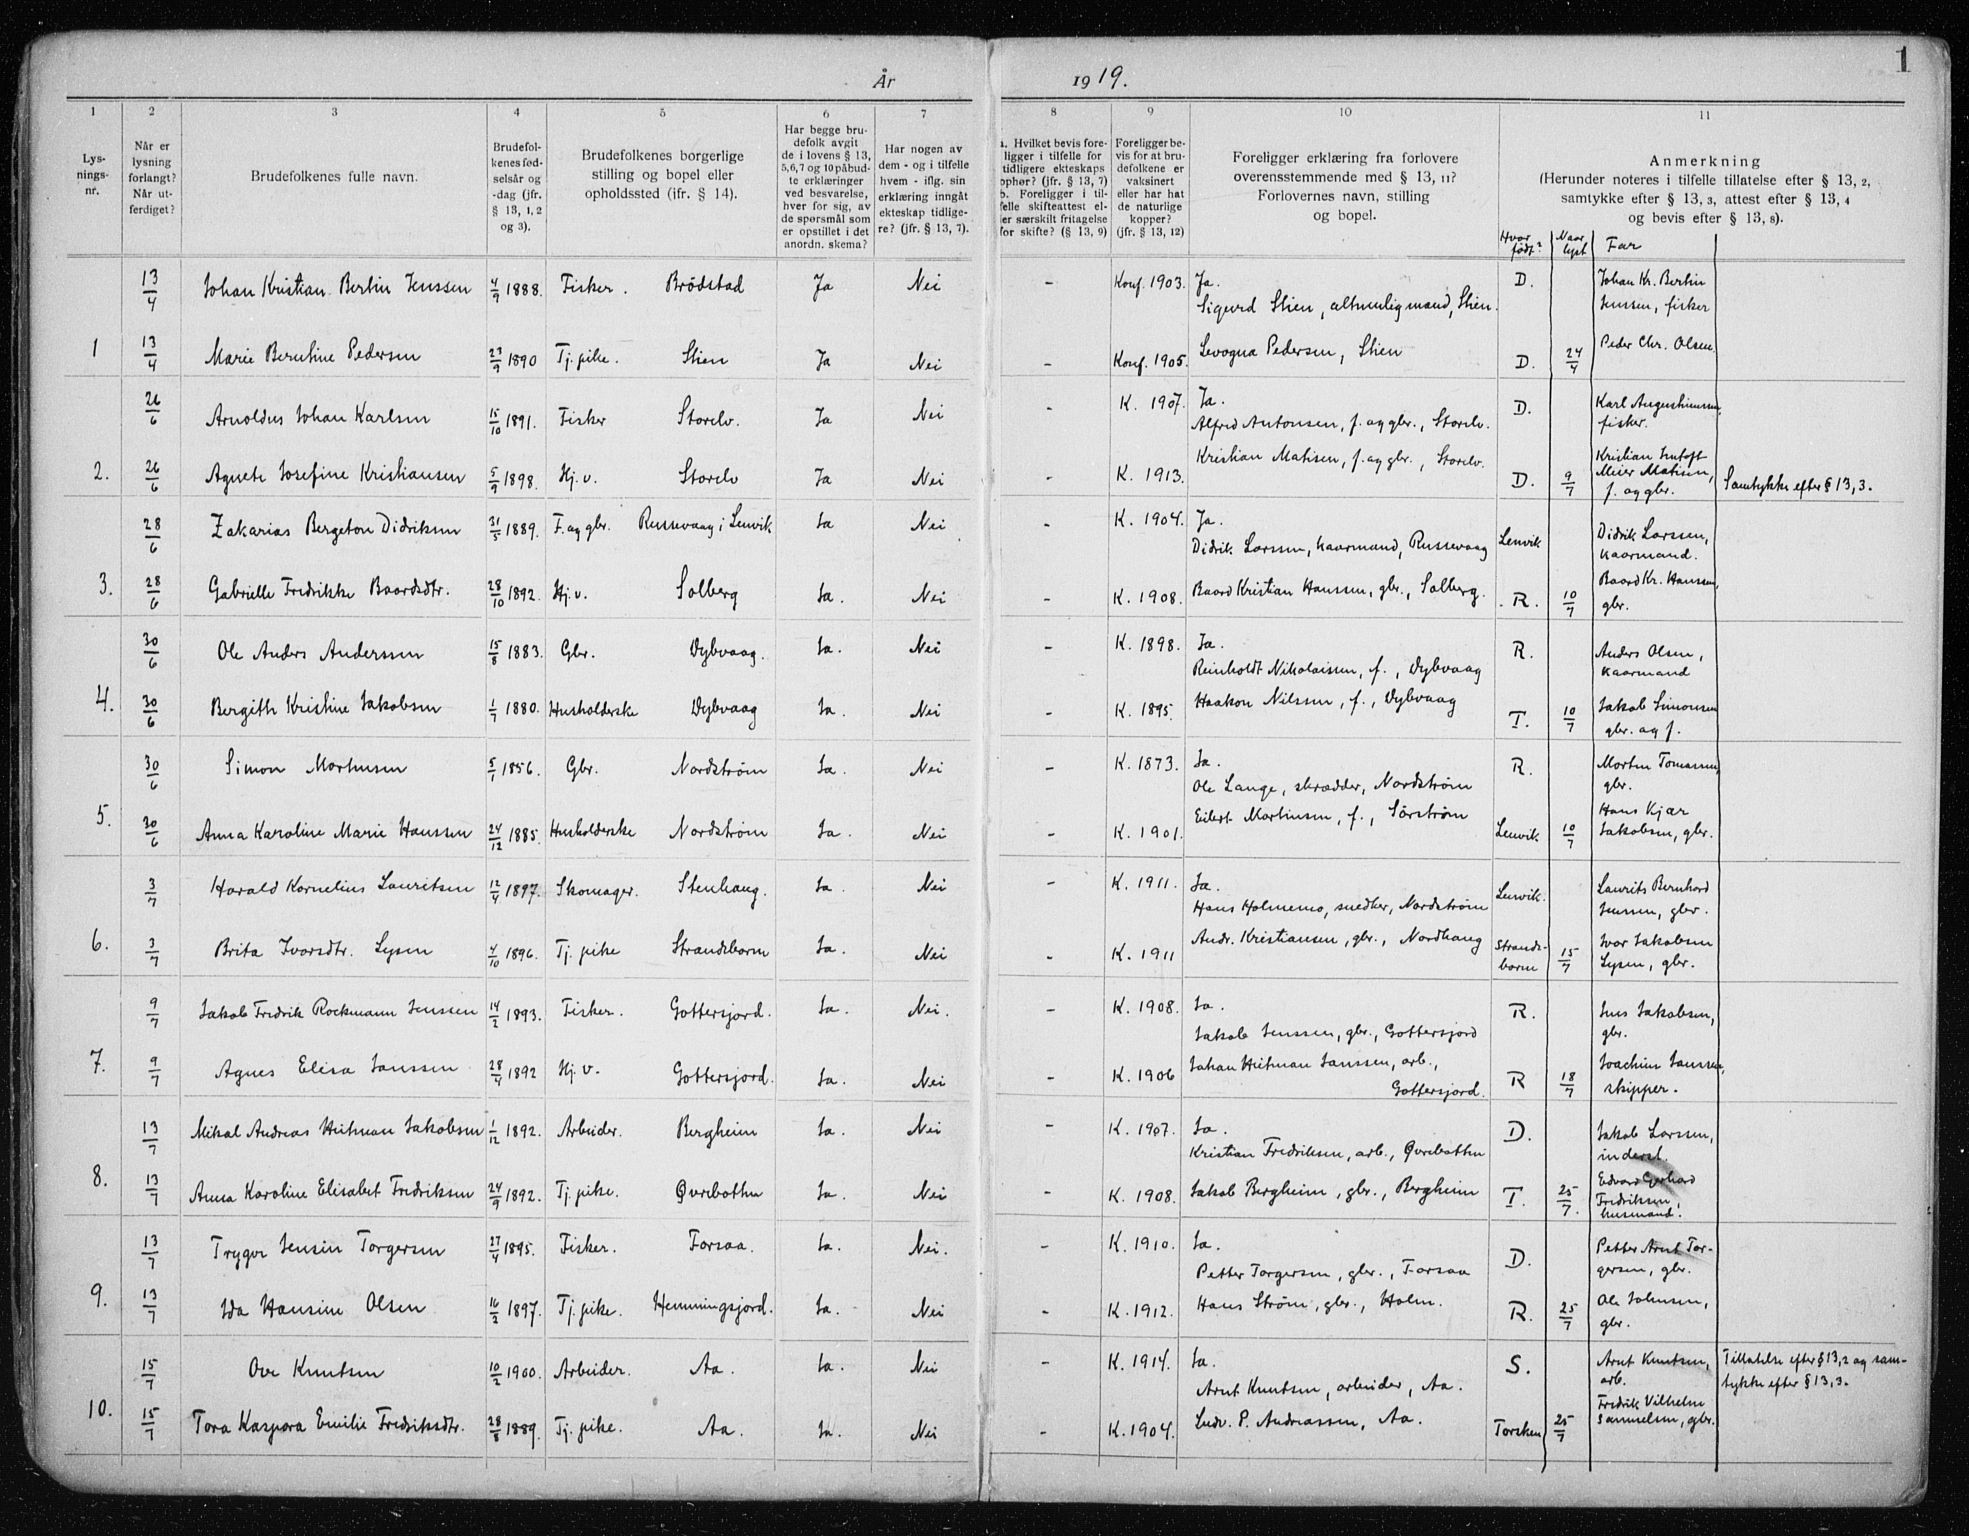 1
År 1919.
1 2 3 4 5 6 7 8 9 10 11
Lys-
nings-
nr.
Når er
lysning
forlangt?
Når ut-
ferdiget?
Brudefolkenes fulle navn.
Brudefol-
kenes fød-
selsår og
-dag (jfr.
§ 13, 1, 2
og 3).
Brudefolkenes borgerlige
stilling og bopel eller
opholdssted (ifr. § 14).
Har begge bru-
defolk avgit
de i lovens § 13,
5,6,7 og 10 påbud-
te erklæringer
ved besvarelse,
hver for sig, av
de spørsmål som
er opstillet i det
anordn. skema?
Har nogen av
dem - og i tilfelle
hvem - iflg. sin
erklæring inngått
ekteskap tidlige-
re? (jfr. § 13, 7).
a. Hvilket bevis fore-
ligger i tilfelle for
tidligere ekteskaps
ophør? (jfr. § 13, 7)
b. Foreligger i til-
felle skifteattest el-
ler særskilt fritagelse
for skifte? (§ 13, 9)
Foreligger be-
vis for at bru-
defolkene er
vaksinert
eller har hat
de naturlige
kopper?
(jfr. § 13, 12)
Foreligger erklæring fra forlovere
overensstemmende med § 13, 11?
Forlovernes navn, stilling
og bopel.
Anmerkning
(Herunder noteres i tilfelle tillatelse efter § 13, 2,
samtykke efter § 13, 3, attest efter § 13, 4
og bevis efter § 13, 8).
Hvor født? Naar lyst Far
13/4 Johan Kristian Bertin Jenssen 4/9 1888. Fisker. Brödstad Ja Nei - Konf. 1903. Ja. D. Johan Kr. Bertin
Sigurd Stien, altmuligmand, Stien. Jenssen, fisker
1 13/4 Marie Berntine Pedersen 23/9 1890 Tj. pike. Stien Ja Nei - Konf. 1905. Levogna Pedersen, Stien D. 24/4 Peder Chr. Olsen.
26/6 Arnoldus Johan Karlsen 15/10 1891. Fisker Storelv. Ja Nei - K. 1907. Ja. D. Karl Augustinussen,
Alfred Antonsen, f. og gbr., Storelv. fisker.
2. 26/6 Agnete Josefine Kristiansen 5/9 1898. Hj. v. Storelv Ja Nei - K. 1913. Kristian Matisen, f. og gbr., Storelv. D. 9/7 Kristian
Meier Matisen, f. og gbr. Samtykke efter § 13,3.
28/6 Zakarias Bergeton Didriksen 31/5 1889. F. og gbr. Russevaag i Lenvik Ja Nei - K. 1904. Ja. Lenvik Didrik Larssen,
Didrik Larssen, kaarmand, Russevaag kaarmand.
3. 28/6 Gabrielle Fredrikke Baardsdtr. 28/10 1892. Hj. v. Solberg Ja. Nei - K. 1908. Baard Kristian Hanssen, gbr., Solberg. R. 10/7 Baard Kr. Hanssen,
gbr.
30/6 Ole Anders Anderssen 15/8 1883. Gbr. Dybvaag. Ja. Nei - K. 1898. Ja. R. Anders Olsen,
Reinholdt Nikolaisen, f., Dybvaag kaarmand
4. 30/6 Bergith Kristine Jakobsen 1/7 1880. Husholderske Dybvaag Ja. Nei - K. 1895. Haakon Nilssen, f., Dybvaag T. 10/7 Jakob Simonsen
gbr. og f.
30/6 Simon Mortensen 5/1 1856. Gbr. Nordstrøm Ja. Nei - K. 1873. Ja. R. Morten Tomassen,
Ole Lange, skrædder, Nordstrøm gbr.
5. 30/6 Anna Karoline Marie Hanssen 24/12 1885. Husholderske Nordstrøm Ja. Nei - K. 1901. Eilert Mortensen, f., Sørstrøm Lenvik 10/7 Hans Kjær
Jakobsen, gbr.
3/7 Harald Kornelius Lauritsen 12/4 1897. Skomager. Stenhaug. Ja. Nei - K. 1911. Ja. Lenvik. Laurits Bernhard
Hans Holmemo, snedker, Nordstrøm Jenssen, gbr.
6. 3/7 Brita Ivarsdtr. Lysen 4/10 1896. Tj. pike Strandebarm Ja. Nei - K. 1911 Andr. Kristiansen, gbr., Nordhaug Strande-
barm 15/7 Ivar Jakobsen
Lysen, gbr.
9/7 Jakob Fredrik Rockmann Jenssen 14/2 1893. Fisker. Gottersjord. Ja. Nei. - K. 1908. Ja. R. Jens Jakobsen,
Jakob Jenssen, gbr., Gottersjord gbr.
7. 9/7 Agnes Elisa Janssen 28/4 1892 Hj. v. Gottersjord. Ja. Nei - K. 1906 Johan Hitman Janssen, arb.,
Gottersjord. R 18/7 Joachim Janssen,
skipper.
13/7 Mikal Andreas Hitman Jakobsen 1/12 1892. Arbeider. Bergheim Ja. Nei - K. 1907. Ja. D. Jakob Larssen,
Kristian Fredriksen, arb., Øvrebotten inderst.
8. 13/7 Anna Karoline Elisabet Fredriksen 24/9 1892. Tj. pike. Øvrebotten Ja. Nei - K. 1908. Jakob Bergheim, gbr., Bergheim T. 25/7. Edvard Gerhard
Fredriksen,
husmand.
13/7 Trygve Jensin Torgersen 27/4 1895. Fisker. Forsaa. Ja. Nei. - K. 1910. Ja. D. Petter Arnt Tor-
Petter Torgersen, gbr., Forsaa gersen, gbr.
9. 13/7 Ida Hansine Olsen 16/2 1897. Tj. pike. Hemmingsjord. Ja. Nei - K. 1912. Hans Strøm, gbr., Holm. R. 25/7 Ole Johnsen,
gbr.
15/7 Ove Knutsen 10/2 1900. Arbeider. Aa. Ja. Nei - K. 1914. Ja. S. Arnt Knutsen, Tillatelse efter § 13,2 og sam-
Arnt Knutsen, arbeider, Aa. arb. tykke efter § 13,3.
10. 15/7 Tora Kaspara Emilie Fredriksdtr. 28/8 1889. Tj. pike. Aa. Ja. Nei - K. 1904. Ludv. P. Andreassen, Aa. Torsken 25/7 Fredrik Vilhelm
Samuelsen, gbr.